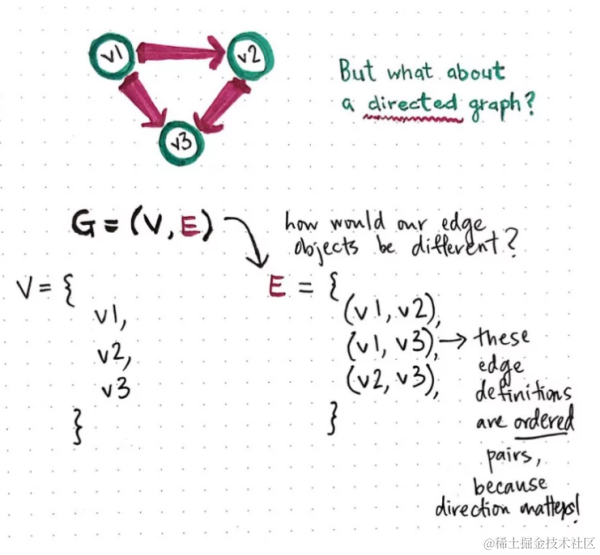 v1
v2
v3
But what about
a directed graph?
G = (V, E)
how would our edge
objects be different?
V = {
v1,
v2,
v3
}
E = {
(v1, v2),
(v1, v3),
(v2, v3),
}
these
edge
definitions
are ordered
pairs,
because
direction matters!
@稀土掘金技术社区